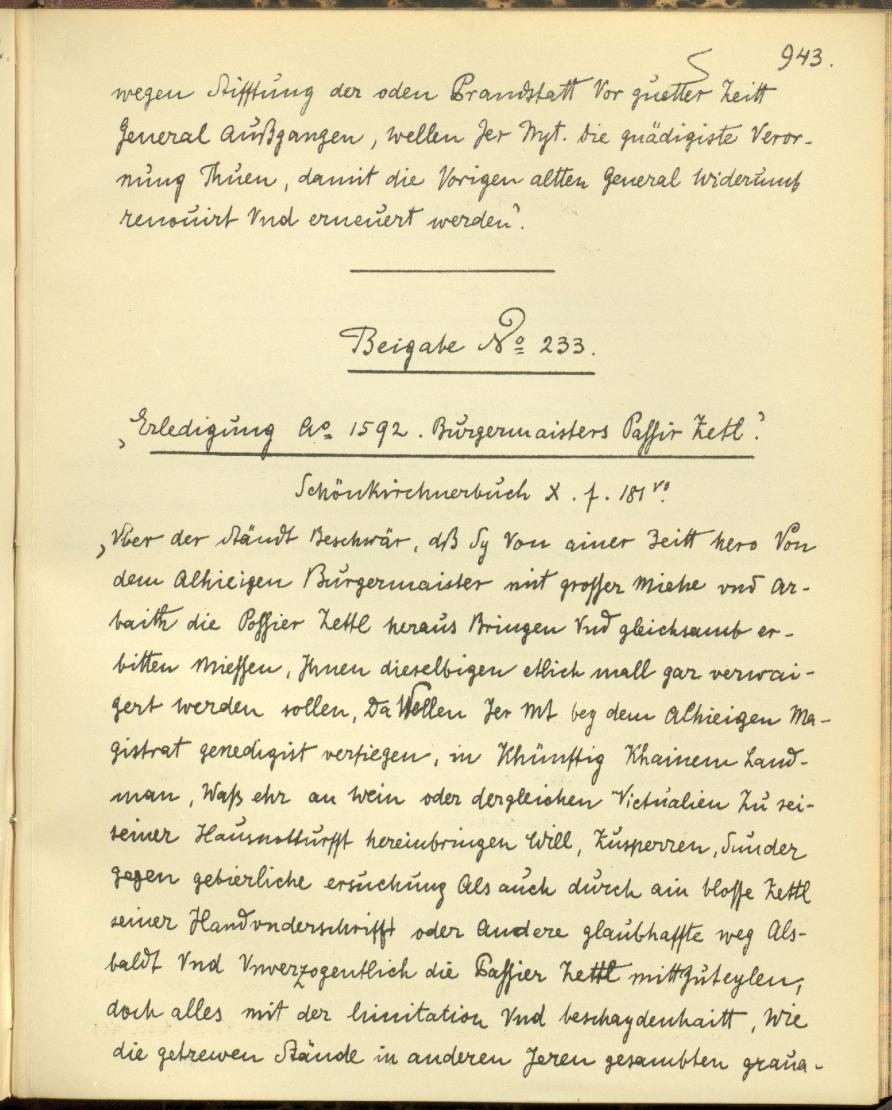 943.
wegen Stifftung der oden Prandstatt Vor guetter Zeitt
General Außgangen, wellen Jer Myt. die gnädigiste Veror-
nung Thuen, damit die Vorigen altten General widerumb
renouirt Vnd erneuert werden".
Beigabe No 233.
„Erledigung Ao 1592. Burgermaisters Passir Zetl."
Schönkirchnerbuch X. f. 181 vo.
„Vber der Ständt Beschwär, dß Sy Von ainer Zeitt hero Von
dem Alhieigen Burgermaister mit grosser Miehe vnd Ar-
baith die Possier Zettl heraus Bringen Vnd gleichsamb er-
bitten Miessen, Jhnen dieselbigen etlich mall gar verwai-
gert werden sollen, Da Wellen Jer Mt bey dem Alhieigen Ma-
gistrat genedigist verfiegen, in Khünfftig Khainem Land-
man, Waß ehr an Wein oder dergleichen Victualien Zu sei-
seiner Hausnotturfft hereinbringen Will, Zusperren, Sunder
gegen gebierliche ersuchung Als auch durch ain blosse Zettl
seiner Handvnderschrifft oder Andere glaubhaffte weg Als-
baldt Vnd Vnverzogentlich die Passier Zettl mittZuteylen,
doch alles mit der limitation Vnd beschaydenhaitt, Wie
die getrewen Stände in anderen Jeren gesambten graua-